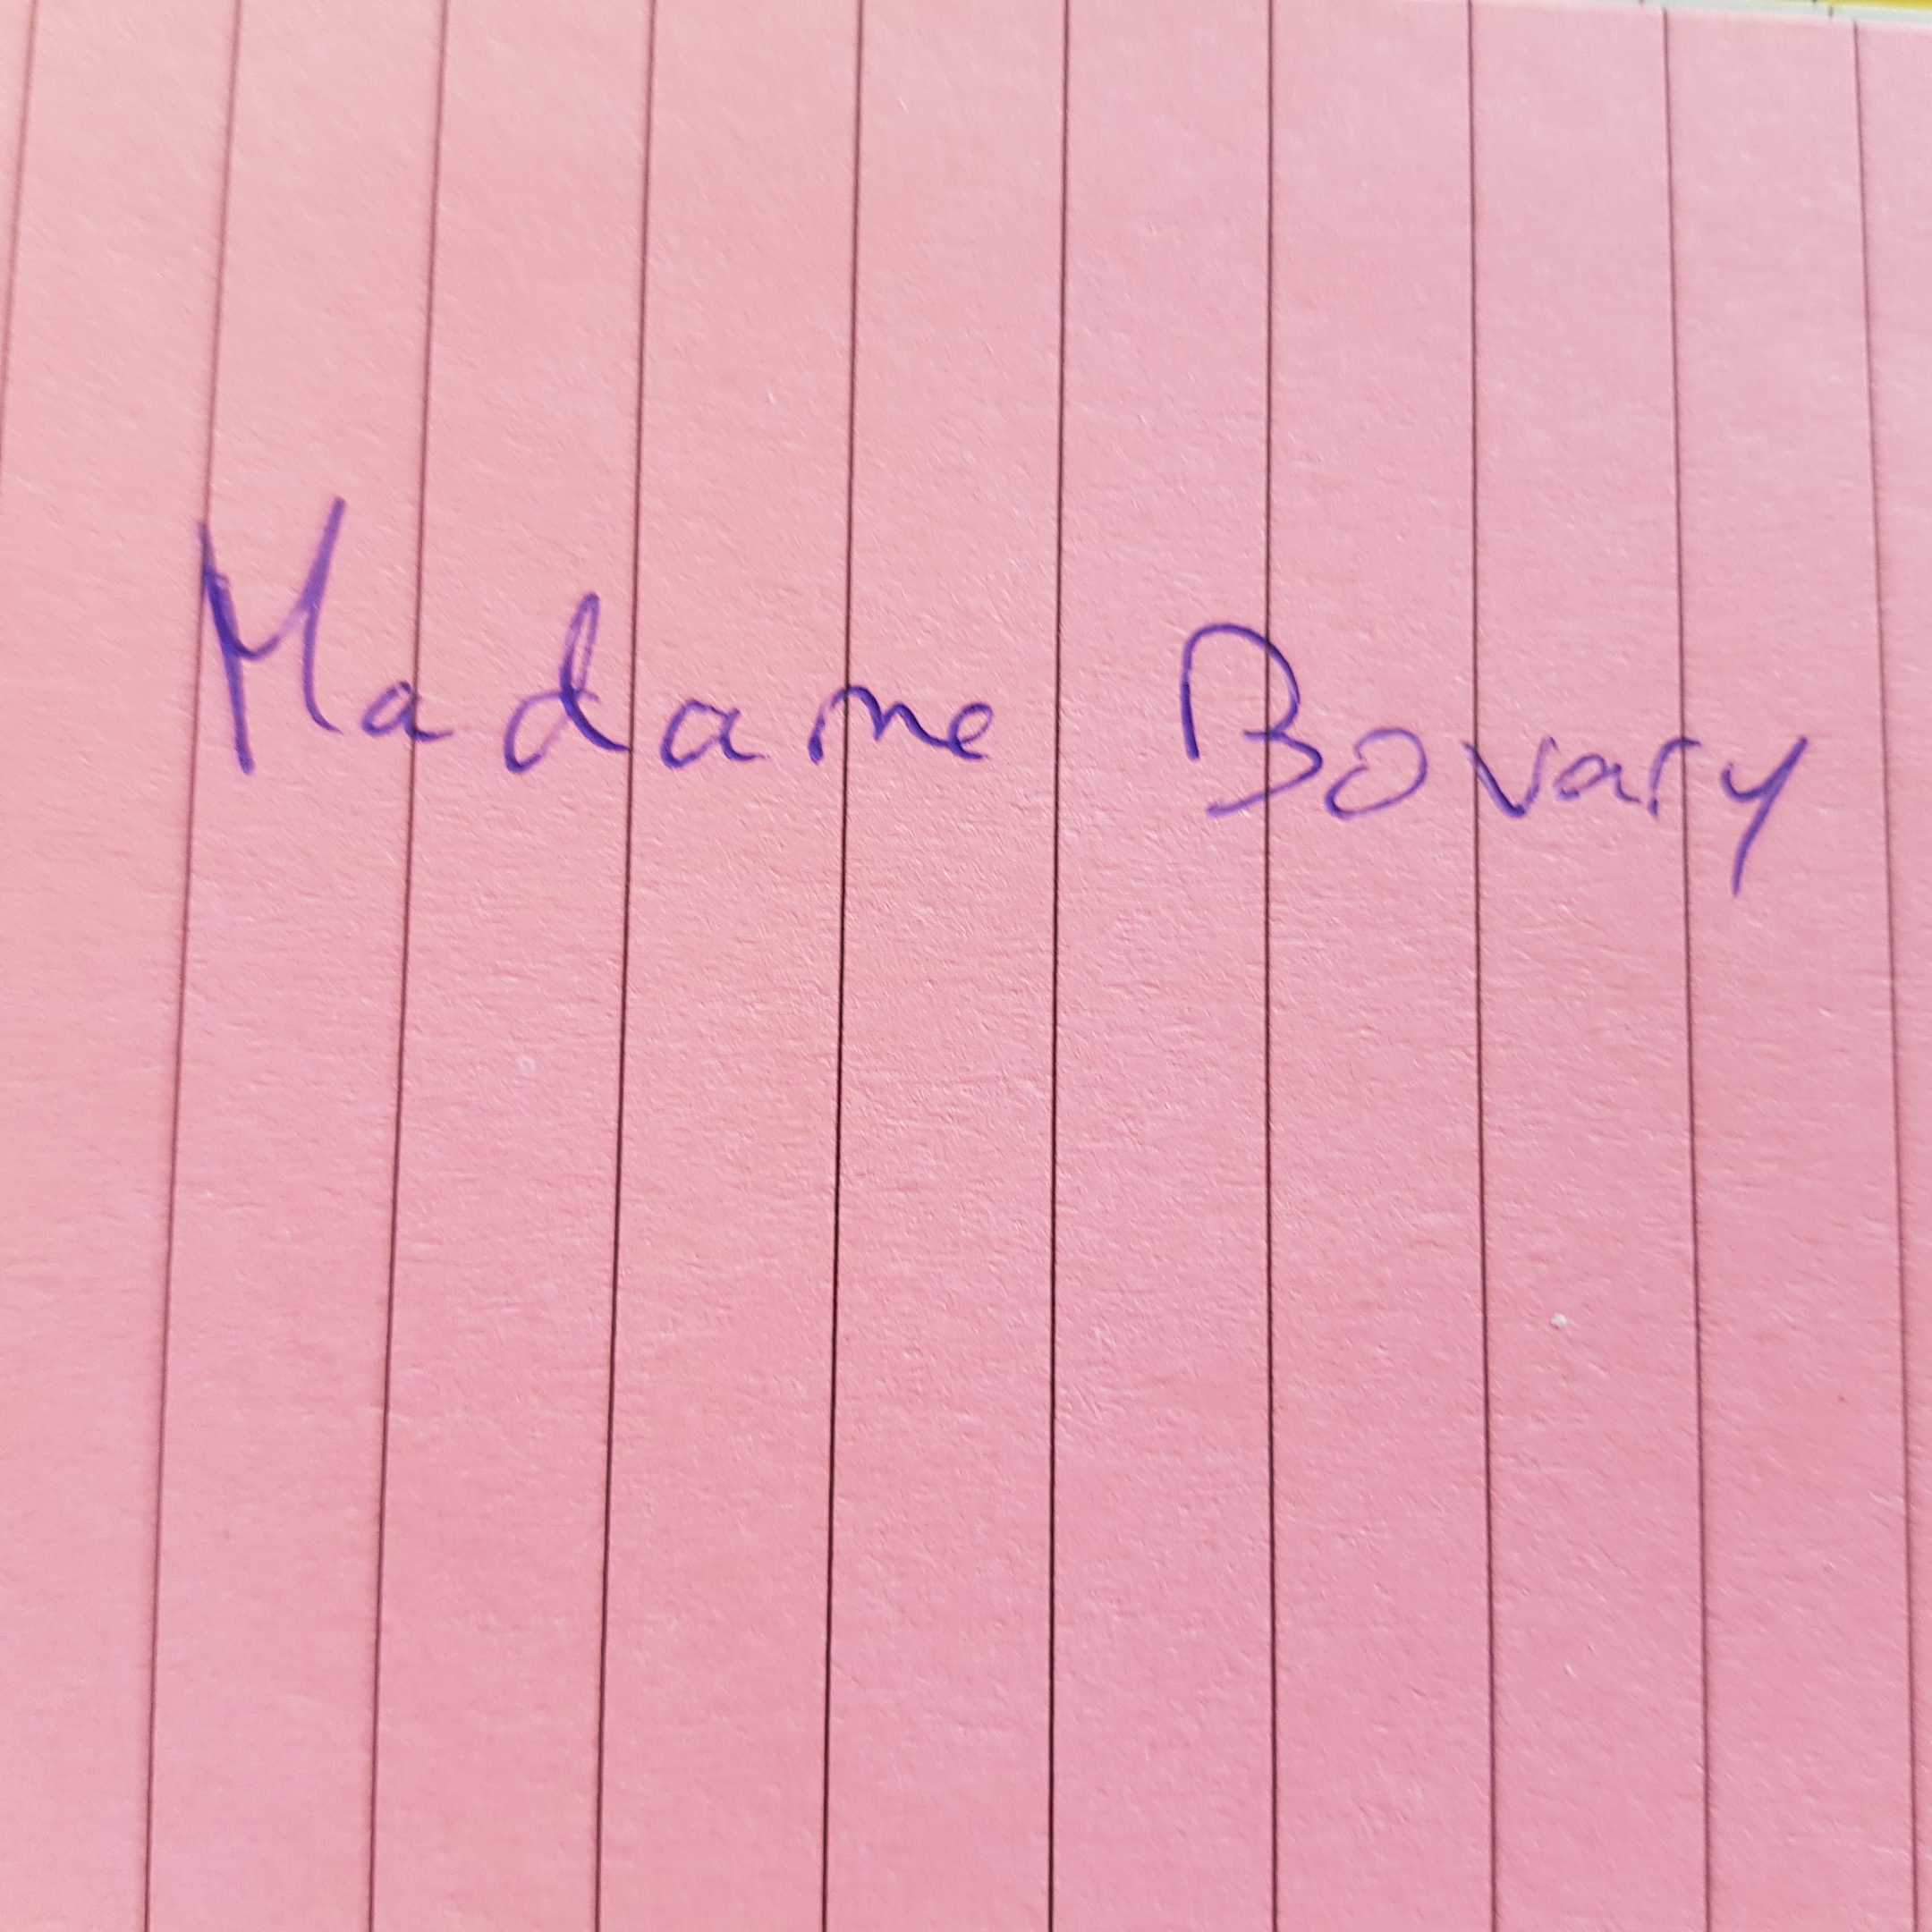 Madame Bovary